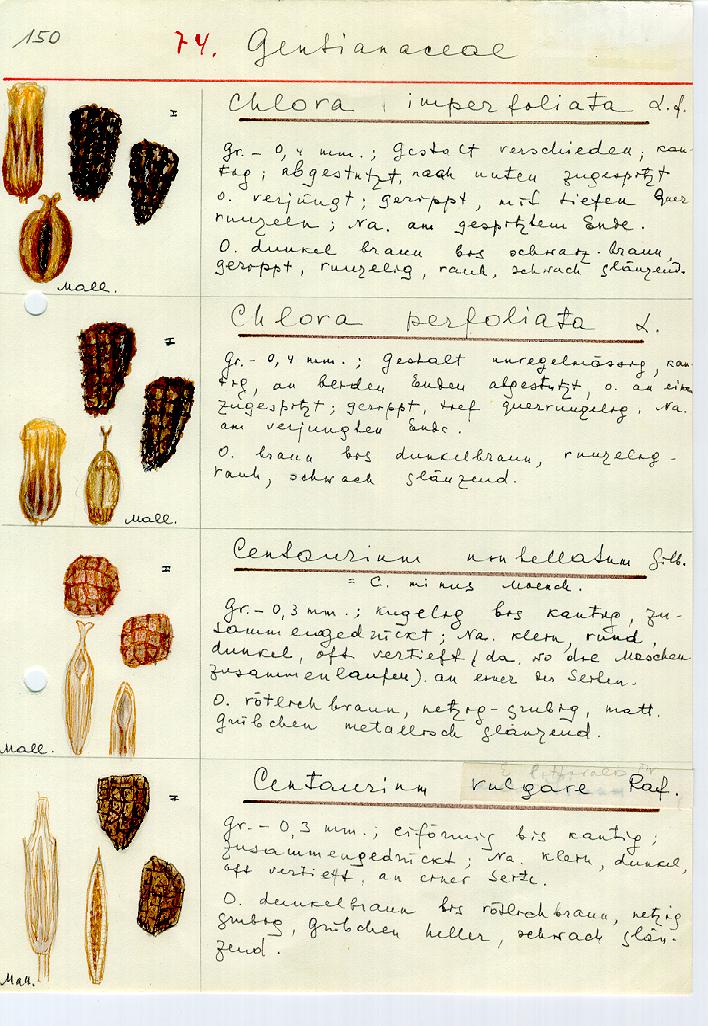 150
74. Gentianaceae
Chlora imperfoliata L.f.
Gr. - 0,4 mm.; Gestalt verschieden, kan-
tig; abgestutzt, nach unten zugespitzt
o. verjüngt; gerippt, mit tiefen Quer
runzeln; Na. am gespitztem Ende.
O. dunkel braun bis schwarz-braun,
gerippt, runzelig, rauh, schwach glänzend.
Mall.
Chlora perfoliata L.
Gr. - 0,4 mm.; Gestalt unregelmässig, kan-
tig, an beiden Enden abgestutzt, o. an einem
zugespitzt; gerippt, tief querrunzelig. Na.
am verjüngten Ende.
O. braun bis dunkelbraun, runzelig-
rauh, schwach glänzend.
Mall.
Centaurium umbellatum Gilb.
= C. minus Moench.
Gr. - 0,3 mm.; Kugelig bis kantig, zu-
sammengedrückt; Na. klein, rund,
dunkel, oft vertieft (da, wo die Maschen
zusammenlaufen) an einer der Seiten.
O. rötlich braun, netzig-grubig, matt.
Grübchen metallisch glänzend.
Mall.
Centaurium vulgare Raf.
Gr. - 0,3 mm.; eiförmig bis kantig;
zusammengedrückt; Na. klein, dunkel,
oft vertieft, an einer Seite.
O. dunkelbraun bis rötlichbraun, netzig
grubig, Grübchen heller, schwach glän-
zend.
Mall.